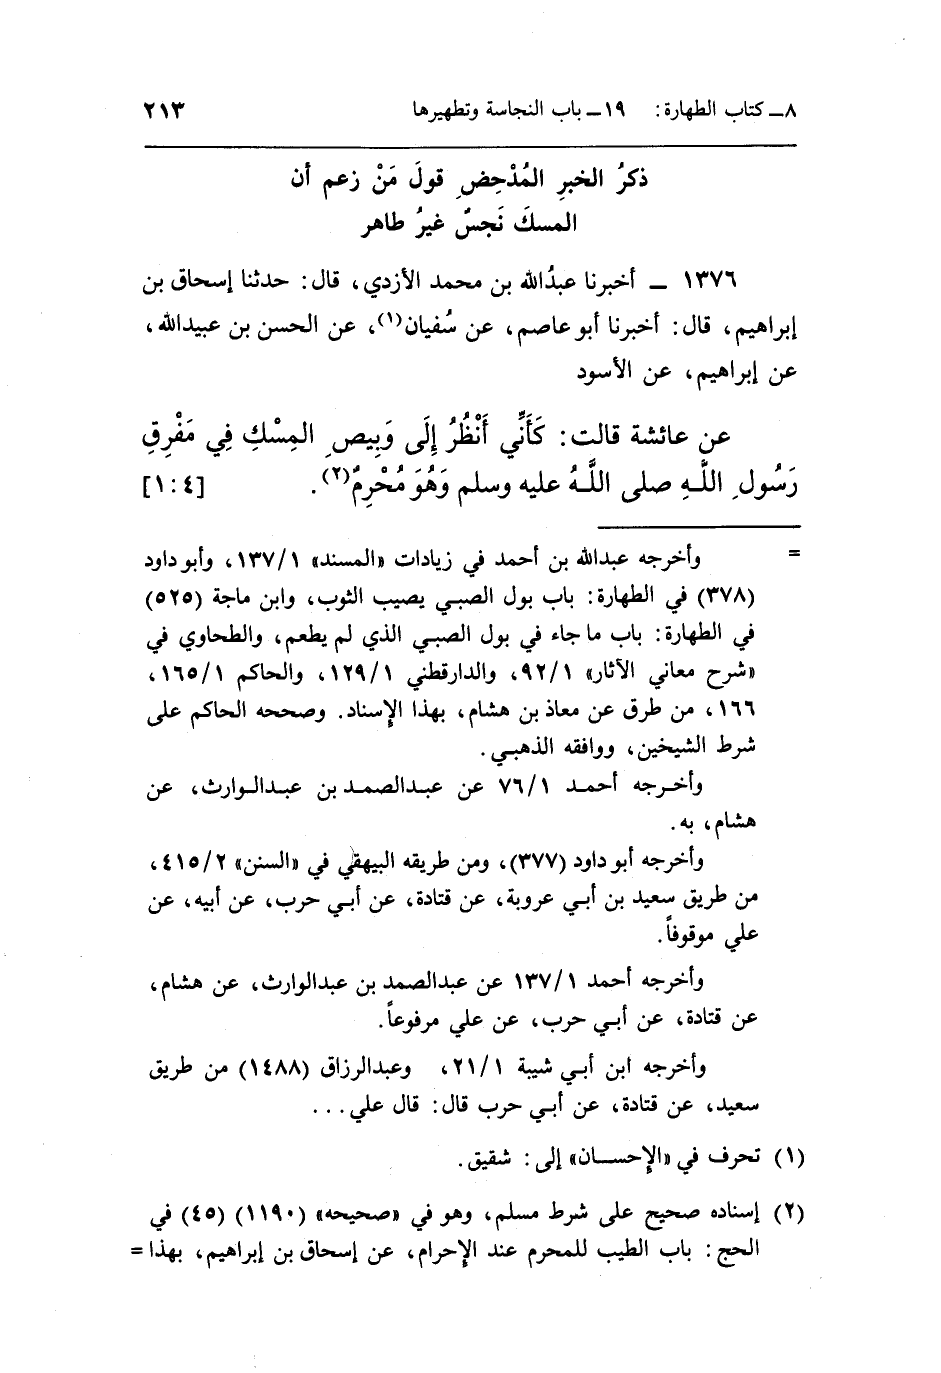 ٨ـ كتاب الطهارة: ١٩ـ باب النجاسة وتطهيرها ٢١٣
ذكرُ الخبرِ المُدْحِضِ قولَ مَنْ زعم أن
المسكَ نَجسٌ غيرُ طاهر
١٣٧٦ ـ أخبرنا عبدُالله بن محمد الأزدي، قال: حدثنا إسحاق بن
إبراهيم، قال: أخبرنا أبو عاصم، عن سُفيان(١)، عن الحسن بن عبيدالله،
عن إبراهيم، عن الأسود
عن عائشة قالت: كَأَنِّي أَنْظُرُ إِلَى وَبِيصِ المِسْكِ فِي مَفْرِقِ
رَسُولِ اللَّهِ صلى اللَّهُ عليه وسلم وَهُوَ مُحْرِمٌ(٢). [٤ : ١]
= وأخرجه عبدالله بن أحمد في زيادات «المسند» ١٣٧/١، وأبو داود
(٣٧٨) في الطهارة: باب بول الصبي يصيب الثوب، وابن ماجة (٥٢٥)
في الطهارة: باب ما جاء في بول الصبي الذي لم يطعم، والطحاوي في
«شرح معاني الآثار» ٩٢/١، والدارقطني ١٢٩/١، والحاكم ١٦٥/١،
١٦٦، من طرق عن معاذ بن هشام، بهذا الإسناد. وصححه الحاكم على
شرط الشيخين، ووافقه الذهبي.
وأخرجه أحمد ٧٦/١ عن عبدالصمد بن عبدالوارث، عن
هشام، به.
وأخرجه أبو داود (٣٧٧)، ومن طريقه البيهقي في «السنن» ٤١٥/٢،
من طريق سعيد بن أبي عروبة، عن قتادة، عن أبي حرب، عن أبيه، عن
علي موقوفاً.
وأخرجه أحمد ١٣٧/١ عن عبدالصمد بن عبدالوارث، عن هشام،
عن قتادة، عن أبي حرب، عن علي مرفوعاً.
وأخرجه ابن أبي شيبة ٢١/١، وعبدالرزاق (١٤٨٨) من طريق
سعيد، عن قتادة، عن أبي حرب قال: قال علي...
(١) تحرف في «الإحسان» إلى: شقيق.
(٢) إسناده صحيح على شرط مسلم، وهو في «صحيحه» (١١٩٠) (٤٥) في
الحج: باب الطيب للمحرم عند الإحرام، عن إسحاق بن إبراهيم، بهذا =